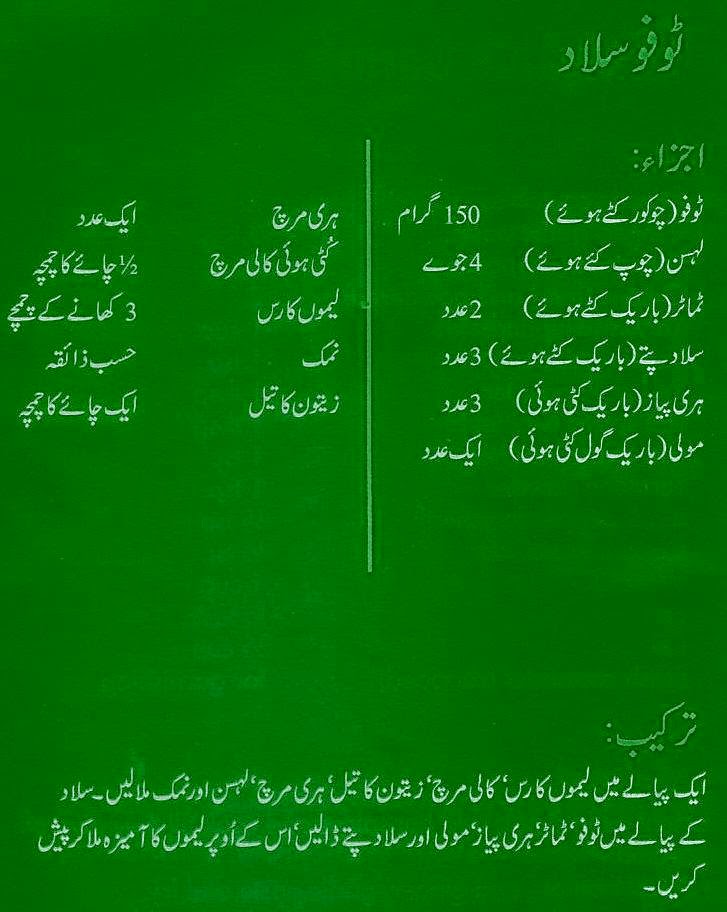 ٹوفو سلاد
اجزاء:
ٹوفو (چوکور کٹے ہوئے) 150 گرام
لہسن (چوپ کئے ہوئے) 4 جوے
ٹماٹر (باریک کٹے ہوئے) 2 عدد
سلاد پتے (باریک کٹے ہوئے) 3 عدد
ہری پیاز (باریک کٹی ہوئی) 3 عدد
مولی (باریک گول کٹی ہوئی) ایک عدد
ہری مرچ ایک عدد
کُٹی ہوئی کالی مرچ ½ چائے کا چمچہ
لیموں کا رس 3 کھانے کے چمچے
نمک حسب ذائقہ
زیتون کا تیل ایک چائے کا چمچہ
ترکیب:
ایک پیالے میں لیموں کا رس‘ کالی مرچ‘ زیتون کا تیل‘ ہری مرچ‘ لہسن اور نمک ملالیں۔ سلاد
کے پیالے میں ٹوفو‘ ٹماٹر‘ ہری پیاز‘ مولی اور سلاد پتے ڈالیں‘ اس کے اُوپر لیموں کا آمیزہ ملا کر پیش
کریں۔